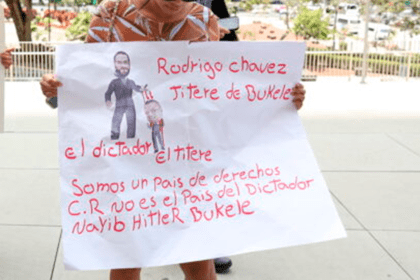 Rodrigo chavez
Titere de Bukele
El dictador El titere
Somos un pais de derechos
C.R NO es el Pais del Dictador
Nayib HitleR Bukele